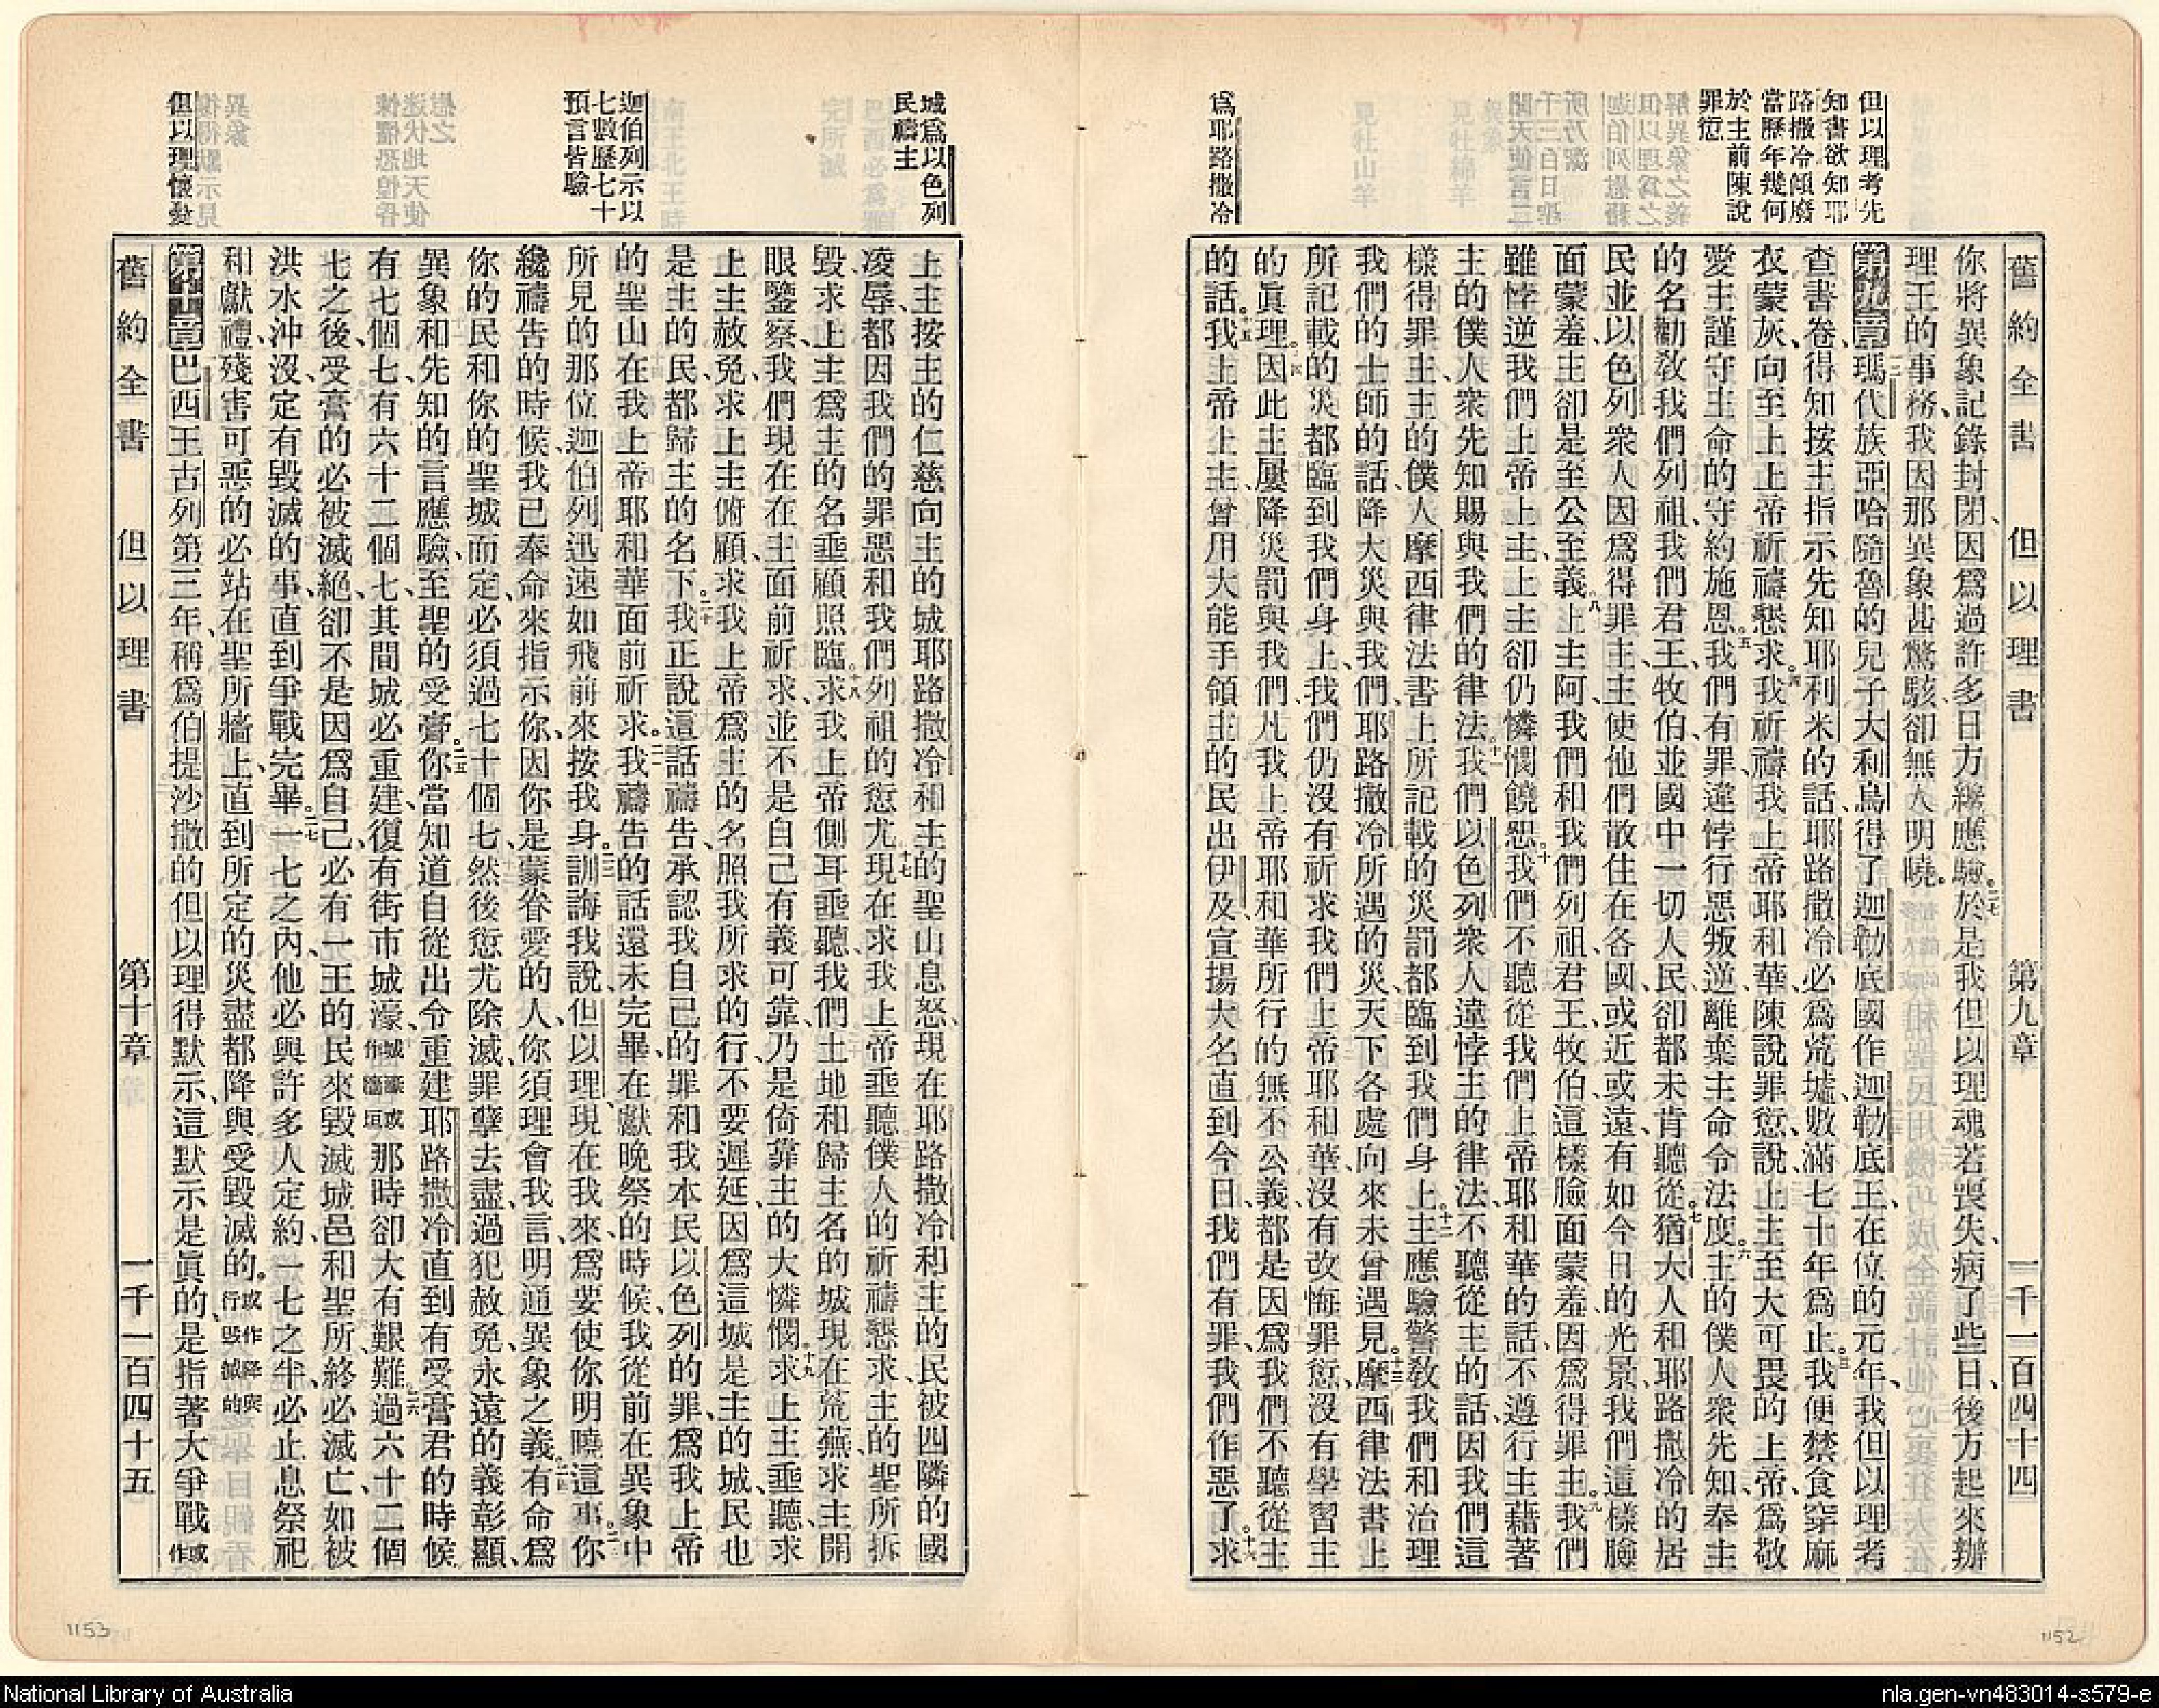 舊約全書 但以理書 第九章 一千一百四十四
但以理考先
知書欲知耶
路撒冷傾廢
當歷年幾何
於主前陳說
罪愆
爲耶路撒冷
你將異象記錄封閉、因爲過許多日方纔應驗。二七於是我但以理魂若喪失、病了些日、後方起來辦
理王的事務、我因那異象甚驚駭、卻無人明曉。
第九章一二瑪代族亞哈隨魯的兒子大利烏得了迦勒底國作迦勒底王、在位的元年、我但以理考
查書卷、得知按主指示先知耶利米的話、耶路撒冷必爲荒墟、數滿七十年爲止。三我便禁食穿麻
衣蒙灰、向至上上帝祈禱懇求。四我祈禱我上帝耶和華、陳說罪愆、說上主至大可畏的上帝、爲敬
愛主謹守主命的、守約施恩。五我們有罪、違悖行惡叛逆、離棄主命令法度。六主的僕人衆先知、奉主
的名勸教我們列祖、我們君王、牧伯、並國中一切人民、卻都未肯聽從。七猶大人和耶路撒冷的居
民、並以色列衆人、因爲得罪主、主使他們散住在各國、或近或遠、有如今日的光景、我們這樣臉
面蒙羞、主卻是至公至義。八上主阿、我們和我們列祖、君王、牧伯、這樣臉面蒙羞、因爲得罪主。九我們
雖悖逆我們上帝上主、上主卻仍憐憫饒恕。十我們不聽從我們上帝耶和華的話、不遵行主藉著
主的僕人衆先知賜與我們的律法。十一我們以色列衆人違悖主的律法、不聽從主的話、因我們這
樣得罪主、主的僕人摩西律法書上所記載的災罰都臨到我們身上。十二主應驗警教我們和治理
我們的士師的話、降大災與我們、耶路撒冷所遇的災、天下各處、向來未曾遇見。十三摩西律法書上
所記載的災都臨到我們身上、我們仍沒有祈求我們上帝耶和華、沒有改悔罪愆、沒有學習主
的眞理。十四因此主屢降災罰與我們、凡我上帝耶和華所行的無不公義、都是因爲我們不聽從主
的話。十五我上帝上主、曾用大能手領主的民出伊及、宣揚大名、直到今日、我們有罪、我們作惡了。十六求
城爲以色列
民禱主
迦伯列示以
七七數歷七十
預言皆驗
但以理懷憂
上主按主的仁慈、向主的城耶路撒冷和主的聖山息怒、現在耶路撒冷和主的民被四隣的國
凌辱、都因我們的罪惡和我們列祖的愆尤。十七現在求我上帝垂聽僕人的祈禱懇求、主的聖所拆
毀、求上主爲主的名垂顧照臨。十八求我上帝側耳垂聽、我們土地和歸主名的城、現在荒蕪、求主開
眼鑒察、我們現在在主面前祈求、並不是自己有義可靠、乃是倚靠主的大憐憫。十九求上主垂聽、求
上主赦免、求上主俯顧、求我上帝爲主的名照我所求的行、不要遲延、因爲這城是主的城、民也
是主的民、都歸主的名下。二十我正說這話禱告、承認我自己的罪和我本民以色列的罪、爲我上帝
的聖山、在我上帝耶和華面前祈求。二一我禱告的話還未完畢、在獻晚祭的時候、我從前在異象中
所見的那位迦伯列、迅速如飛前來、按我身。二二訓誨我說、但以理、現在我來、爲要使你明曉這事。二三你
纔禱告的時候、我已奉命來指示你、因你是蒙眷愛的人、你須理會我言、明通異象之義。二四有命爲
你的民和你的聖城而定、必須過七十個七、然後愆尤除滅、罪孽去盡、過犯赦免、永遠的義彰顯、
異象和先知的言應驗、至聖的受膏。二五你當知道、自從出令重建耶路撒冷、直到有受膏君的時候、
有七個七、有六十二個七、其間城必重建、復有街市城濠、城濠或作牆垣或那時卻大有艱難。二六過六十二個
七之後、受膏的必被滅絕、卻不是因爲自己、必有一王的民來毀滅城邑和聖所、終必滅亡、如被
洪水沖沒、定有毀滅的事、直到爭戰完畢。二七一七之內、他必與許多人定約、一七之半、必止息祭祀
和獻禮、殘害可惡的必站在聖所牆上、直到所定的災盡都降與受毀滅的。或作降與行毀滅的
第十章巴西王古列第三年、稱爲伯提沙撒的但以理得默示、這默示是眞的、是指著大爭戰或作
舊約全書 但以理書 第十章 一千一百四十五
1153
1152
National Library of Australia
nla.gen-vn483014-s579-e